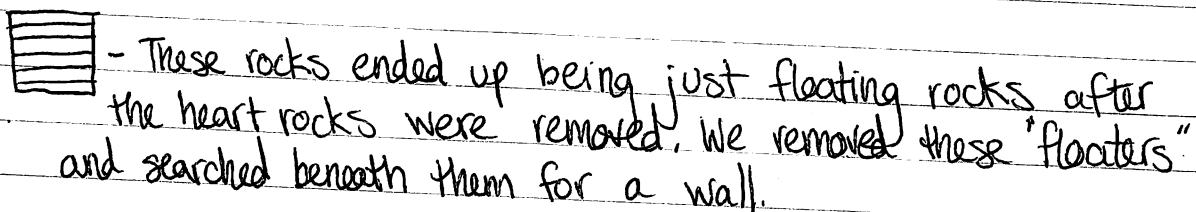 - These rocks ended up being just floating rocks after
the heart rocks were removed. We removed these "floaters"
and searched beneath them for a wall.